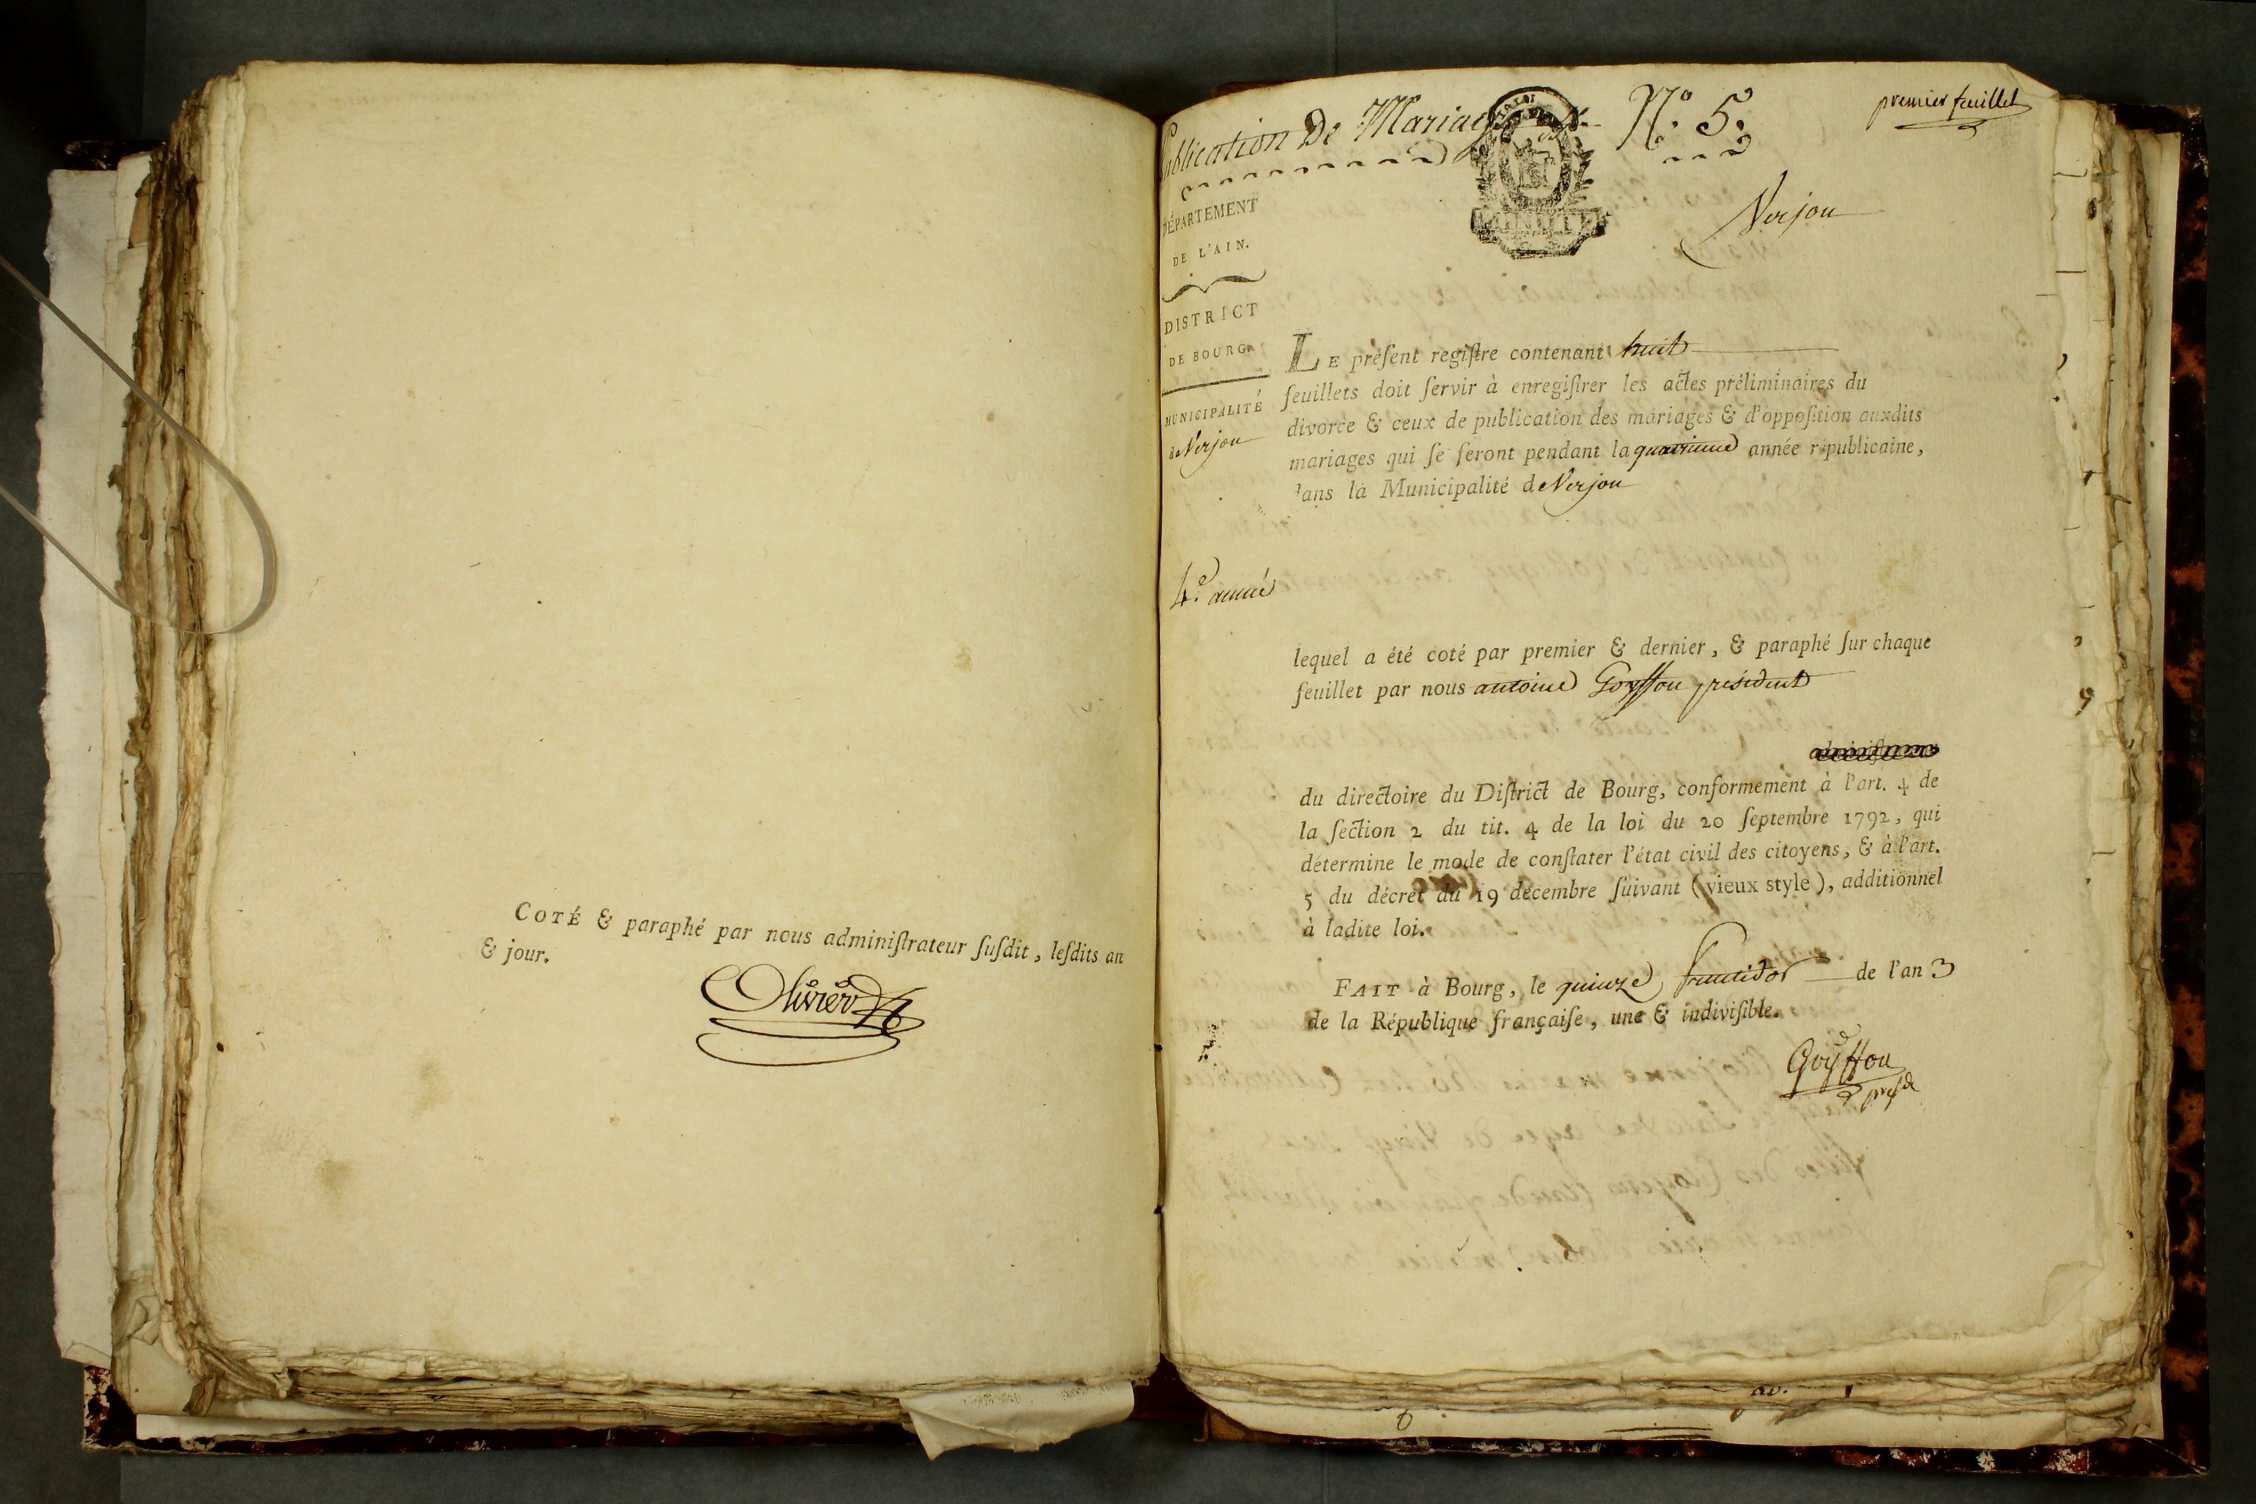 COTÉ & paraphé par nous adminiſtrateur ſuſdit, leſdits an
& jour.
Olivier
Publication De Mariage N.º 5.
premier feuillet
Verjou
DÉPARTEMENT
DE L'AIN.
DISTRICT
DE BOURG.
MUNICIPALITÉ
de Verjou
LE préſent regiſtre contenant huit
feuillets doit ſervir à enregiſtrer les actes préliminaires du
divorce & ceux de publication des mariages & d'oppoſition auxdits
mariages qui ſe feront pendant la quatrieme année républicaine,
dans la Municipalité de Verjou
4.e année
lequel a été coté par premier & dernier, & paraphé ſur chaque
feuillet par nous antoine Goyffon président
du directoire du Diſtrict de Bourg, conformement à l'art. 4 de
la ſection 2 du tit. 4 de la loi du 20 ſeptembre 1792, qui
détermine le mode de conſtater l'état civil des citoyens, & à l'art.
5 du décret du 19 décembre ſuivant (vieux style), additionnel
à ladite loi.
FAIT à Bourg, le quinze fructidor de l'an 3
de la République françaiſe, une & indiviſible.
Goyffon
presid